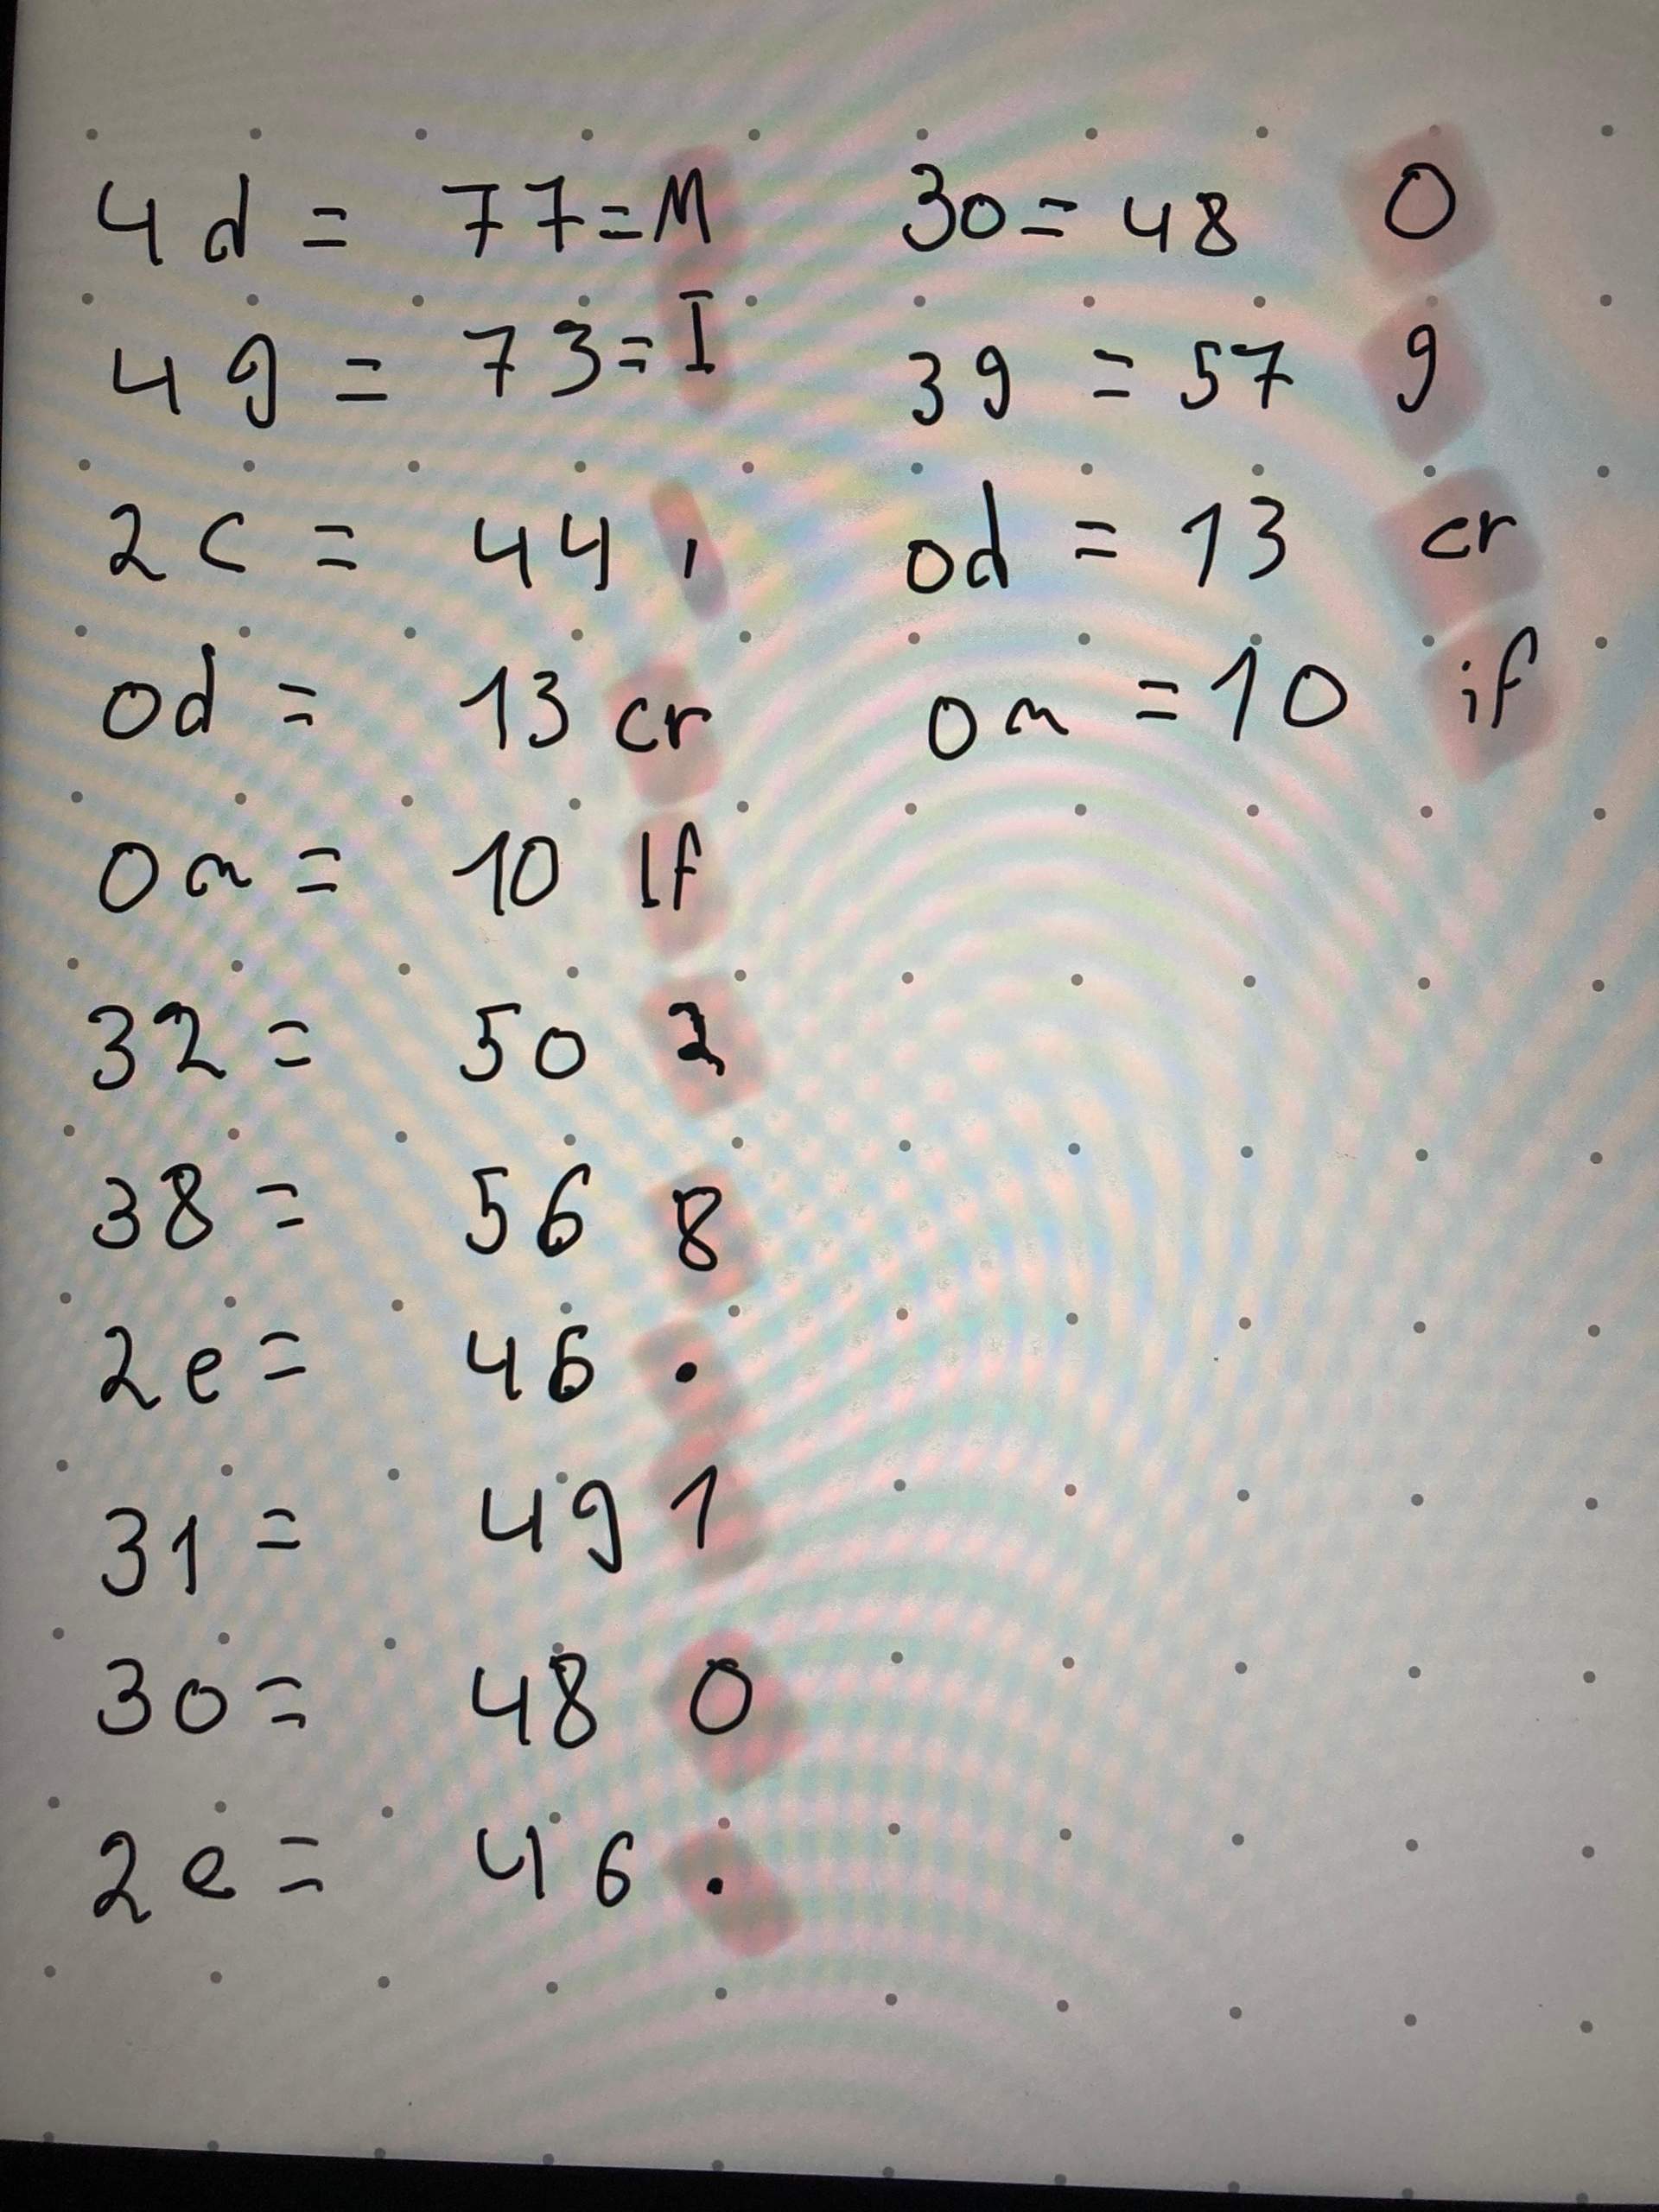 4d = 77=M
4g = 73=I
2c = 44 ,
0d = 13 cr
0a = 10 lf
32 = 50 2
38 = 56 8
2e = 46 .
31 = 49 1
30 = 48 0
2e = 46 .
30 = 48 0
39 = 57 9
0d = 13 cr
0a = 10 if